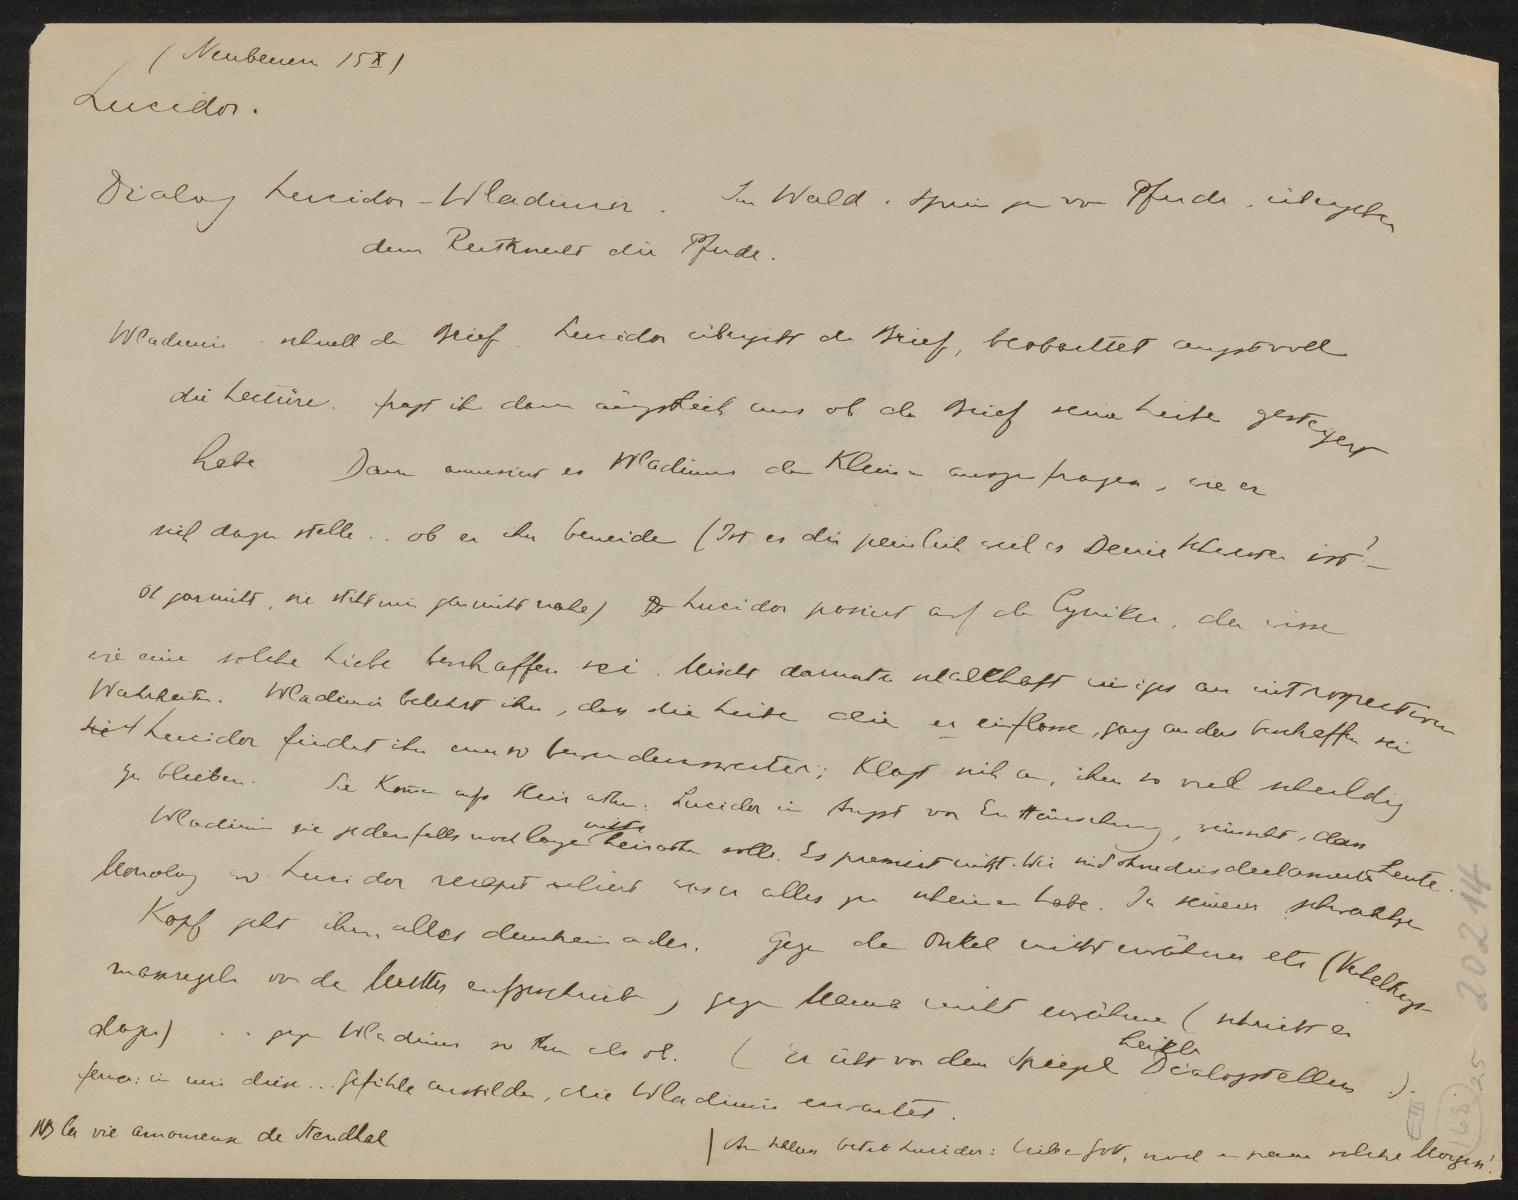 (Neubeuern 15 X)
Lucidor.
Dialog Lucidor–Wladimir. Im Wald. von Pferde, übergeben
dem Reitknecht die Pferde.
Wladimir: schnell den Brief. Lucidor übergibt den Brief, beobachtet angstvoll
die Lectüre. fragt ihn dann ängstlich aus ob der Brief seine Liebe gesteigert
habe. Dann amusiert es Wladimir den Kleinen auszufragen, wie er
sich dazu stelle .. ob er ihn beneide (Ist es dir peinlich weil es Deine Schwester ist? –
O gar nicht, sie steht mir gar nicht nahe) Lucidor posiert auf den Cyniker, der wisse
wie eine solche Liebe beschaffen sei. Mischt darunter schalkhaft einiges an introspectiven
Wahrheiten. Wladimir belehrt ihn, dass die Liebe die er einflösse, ganz anders beschaffen sei
Lucidor findet ihn umso bewundernswerter; klagt sich an, ihm so viel schuldig
zu bleiben. Sie kommen aufs Heirathen: Lucidor in Angst vor Enttäuschung, wünscht, dass
Wladimir sie jedenfalls noch lange nicht heirathen solle. Es pressiert nicht. Wir sind ohnedies declassierte Leute.
Monolog wo Lucidor recapituliert was er alles zu scheinen habe. In seinem schwachen
Kopf geht ihm alles durcheinander. Gegen den Onkel nicht erwähnen etc (Verhaltungs-
massregeln von der Mutter aufgeschrieben), gegen Mama nicht erwähnen (schreibt er
dazu) .. gegen Wladimir so thun als ob. (Er übt vor dem Spiegel heikle Dialogstellen).
ferner: in mir diese ... Gefühle ausbilden, die Wladimir erwartet.
NB la vie amoureuse de Stendhal
Am Schluss betet Lucidor: lieber Gott, noch ein paar solche Morgen!
E III
168
25
20214